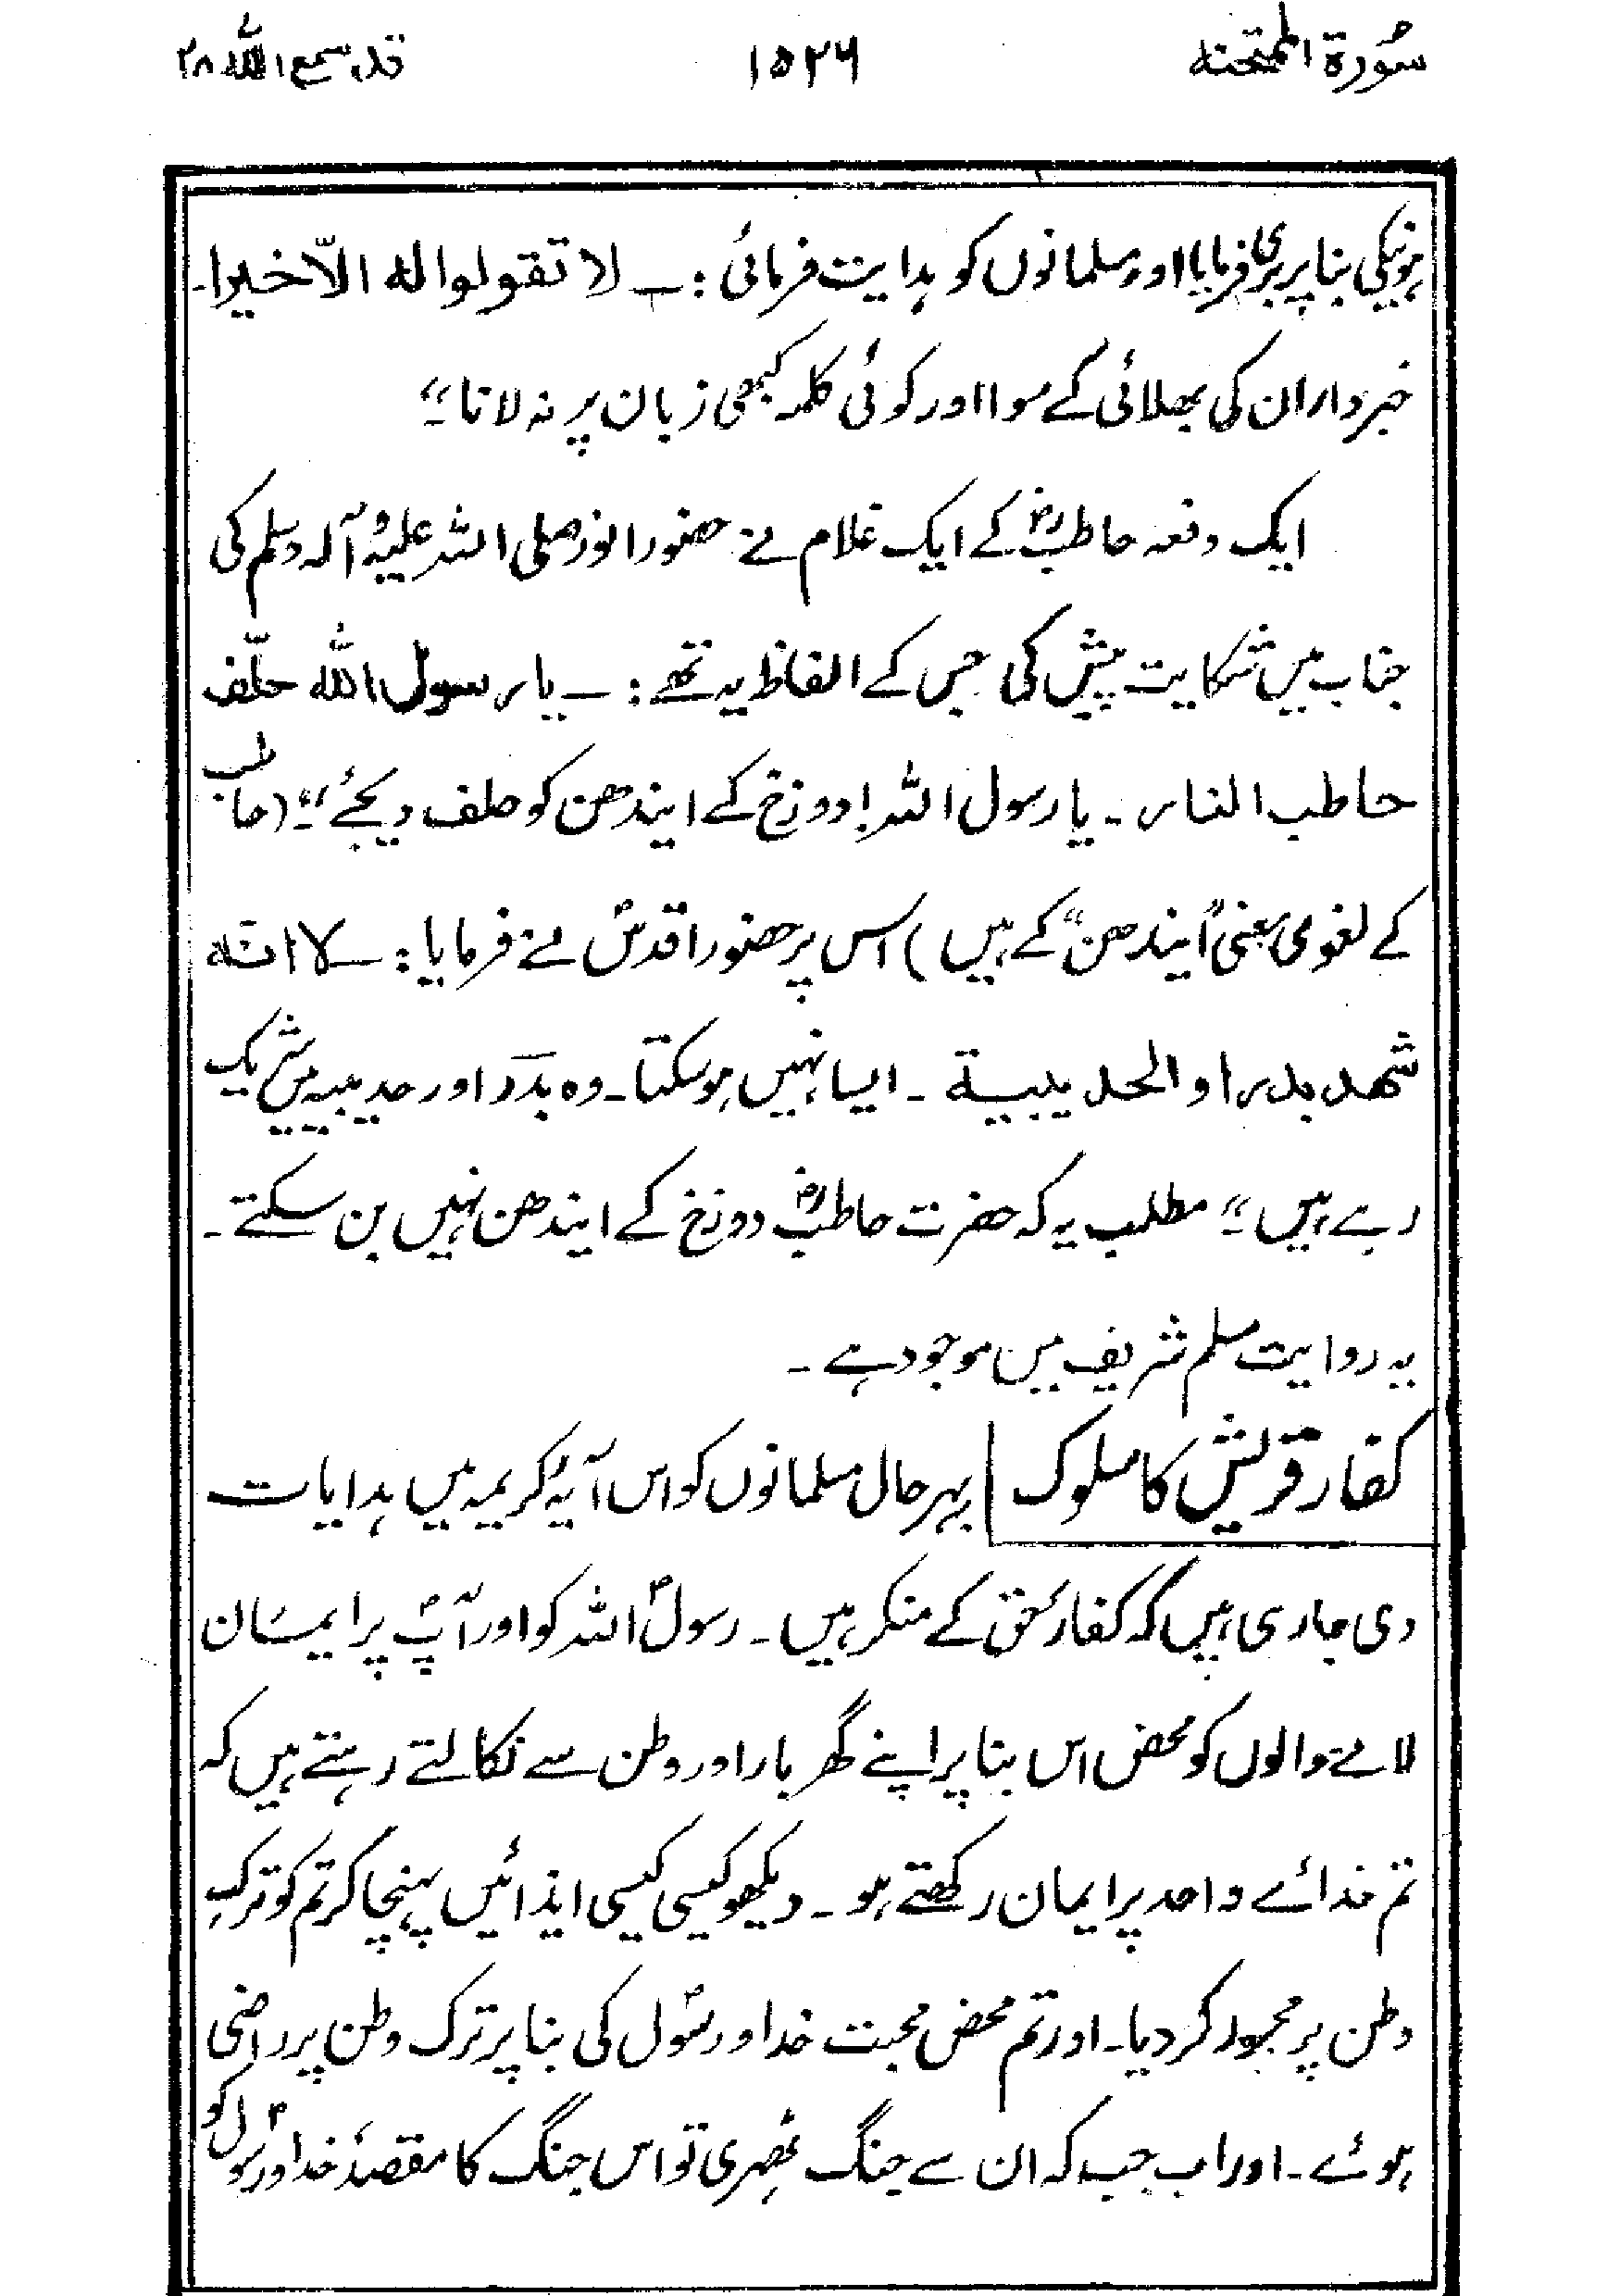 سُورة الممتحنه ۱۵۲۶ قد سمع الله ۲۸
ہونیکی بنا پر بری فرمایا اور مسلمانوں کو ہدایت فرمائی :ــ لا تقولوا له الاّ خیرا۔
خبردار ان کی بھلائی کے سوا اور کوئی کلمہ کبھی زبان پر نہ لانا ۔"
ایک دفعہ حاطبؓ کے ایک غلام نے حضور انور صلی اللہ علیہ وآلہ وسلم کی
جناب میں شکایت پیش کی جس کے الفاظ یہ تھے :ــ یا رسول الله حلّف
حاطب النار ۔ یا رسول اللہ! دوزخ کے ایندھن کو حلف دیجئے ۔" (حاطب
کے لغوی معنی "ایندھن" کے ہیں) اس پر حضور اقدسؐ نے فرمایا :ــ لا انه
شھد بدرا و الحدیبیة ۔ ایسا نہیں ہو سکتا ۔ وہ بدر اور حدیبیہ میں شریک
رہے ہیں ۔" مطلب یہ کہ حضرت حاطبؓ دوزخ کے ایندھن نہیں بن سکتے ۔
یہ روایت مسلم شریف میں موجود ہے ۔
کفار قریش کا سلوک | بہرحال مسلمانوں کو اس آیۂ کریمہ میں ہدایات
دی جا رہی ہیں کہ کفار حق کے منکر ہیں ۔ رسولؐ اللہ کو اور آپؐ پر ایمان
لانے والوں کو محض اس بنا پر اپنے گھر بار اور وطن سے نکالتے رہتے ہیں کہ
تم خدائے واحد پر ایمان رکھتے ہو ۔ دیکھو کیسی کیسی ایذائیں پہنچا کر تم کو ترکِ
وطن پر مجبور کر دیا ۔ اور تم محض محبت خدا و رسولؐ کی بنا پر ترک وطن پر راضی
ہوئے ۔ اور اب جب کہ ان سے جنگ ٹھہری تو اس جنگ کا مقصد خدا و رسولؐ کو